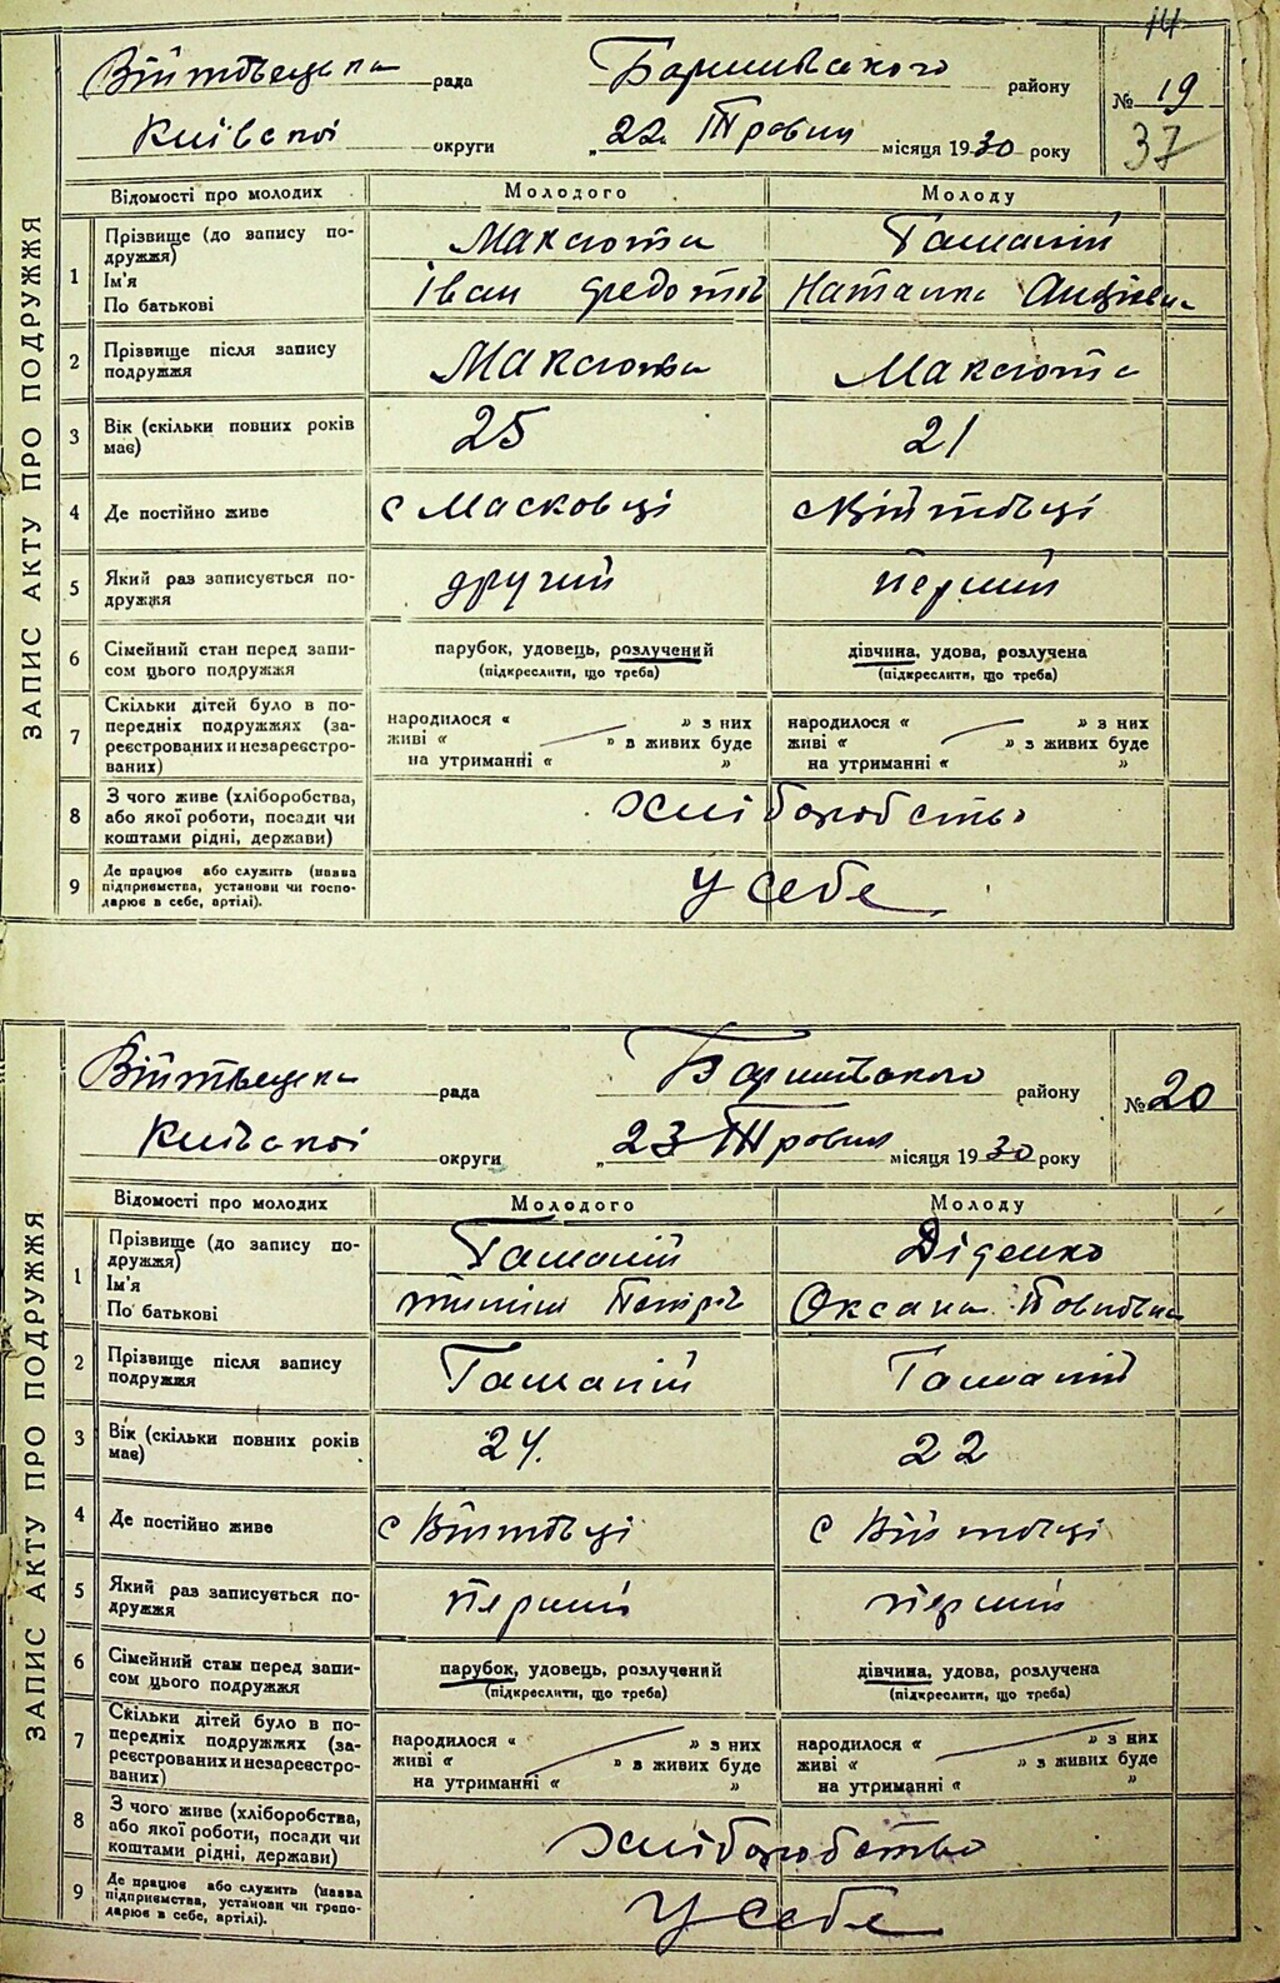 14
ЗАПИС АКТУ ПРО ПОДРУЖЖЯ
Війтовецька рада Баришівського району № 19
Київської округи „22 Травня місяця 1930 року 37
Відомості про молодих Молодого Молоду
1 Прізвище (до запису подружжя) Максюта Гаманій
Ім'я
По батькові Іван Федотов Наталка Андріївна
2 Прізвище після запису подружжя Максюта Максюта
3 Вік (скільки повних років має) 25 21
4 Де постійно живе с Масковці с Війтовці
5 Який раз записується подружжя другий перший
6 Сімейний стан перед записом цього подружжя парубок, удовець, розлучений дівчина, удова, розлучена
(підкреслити, що треба) (підкреслити, що треба)
7 Скільки дітей було в попередніх подружжях (зареєстрованих и незареєстрованих)
народилося « » з них народилося « » з них
живі « » в живих буде живі « » з живих буде
на утриманні « » на утриманні « »
8 З чого живе (хліборобства, або якої роботи, посади чи коштами рідні, держави) хліборобство
9 Де працює або служить (назва підприємства, установи чи господарює в себе, артілі). у себе
ЗАПИС АКТУ ПРО ПОДРУЖЖЯ
Війтовецька рада Баришівського району № 20
Київської округи „23 Травня місяця 1930 року
Відомості про молодих Молодого Молоду
1 Прізвище (до запису подружжя) Гаманій Діденко
Ім'я
По батькові Петрів Оксана Павлівна
2 Прізвище після запису подружжя Гаманій Гаманій
3 Вік (скільки повних років має) 24. 22
4 Де постійно живе с Війтовці с Війтовці
5 Який раз записується подружжя перший перший
6 Сімейний стан перед записом цього подружжя парубок, удовець, розлучений дівчина, удова, розлучена
(підкреслити, що треба) (підкреслити, що треба)
7 Скільки дітей було в попередніх подружжях (зареєстрованих и незареєстрованих)
народилося « » з них народилося « » з них
живі « » в живих буде живі « » з живих буде
на утриманні « » на утриманні « »
8 З чого живе (хліборобства, або якої роботи, посади чи коштами рідні, держави) хліборобство
9 Де працює або служить (назва підприємства, установи чи господарює в себе, артілі). у себе